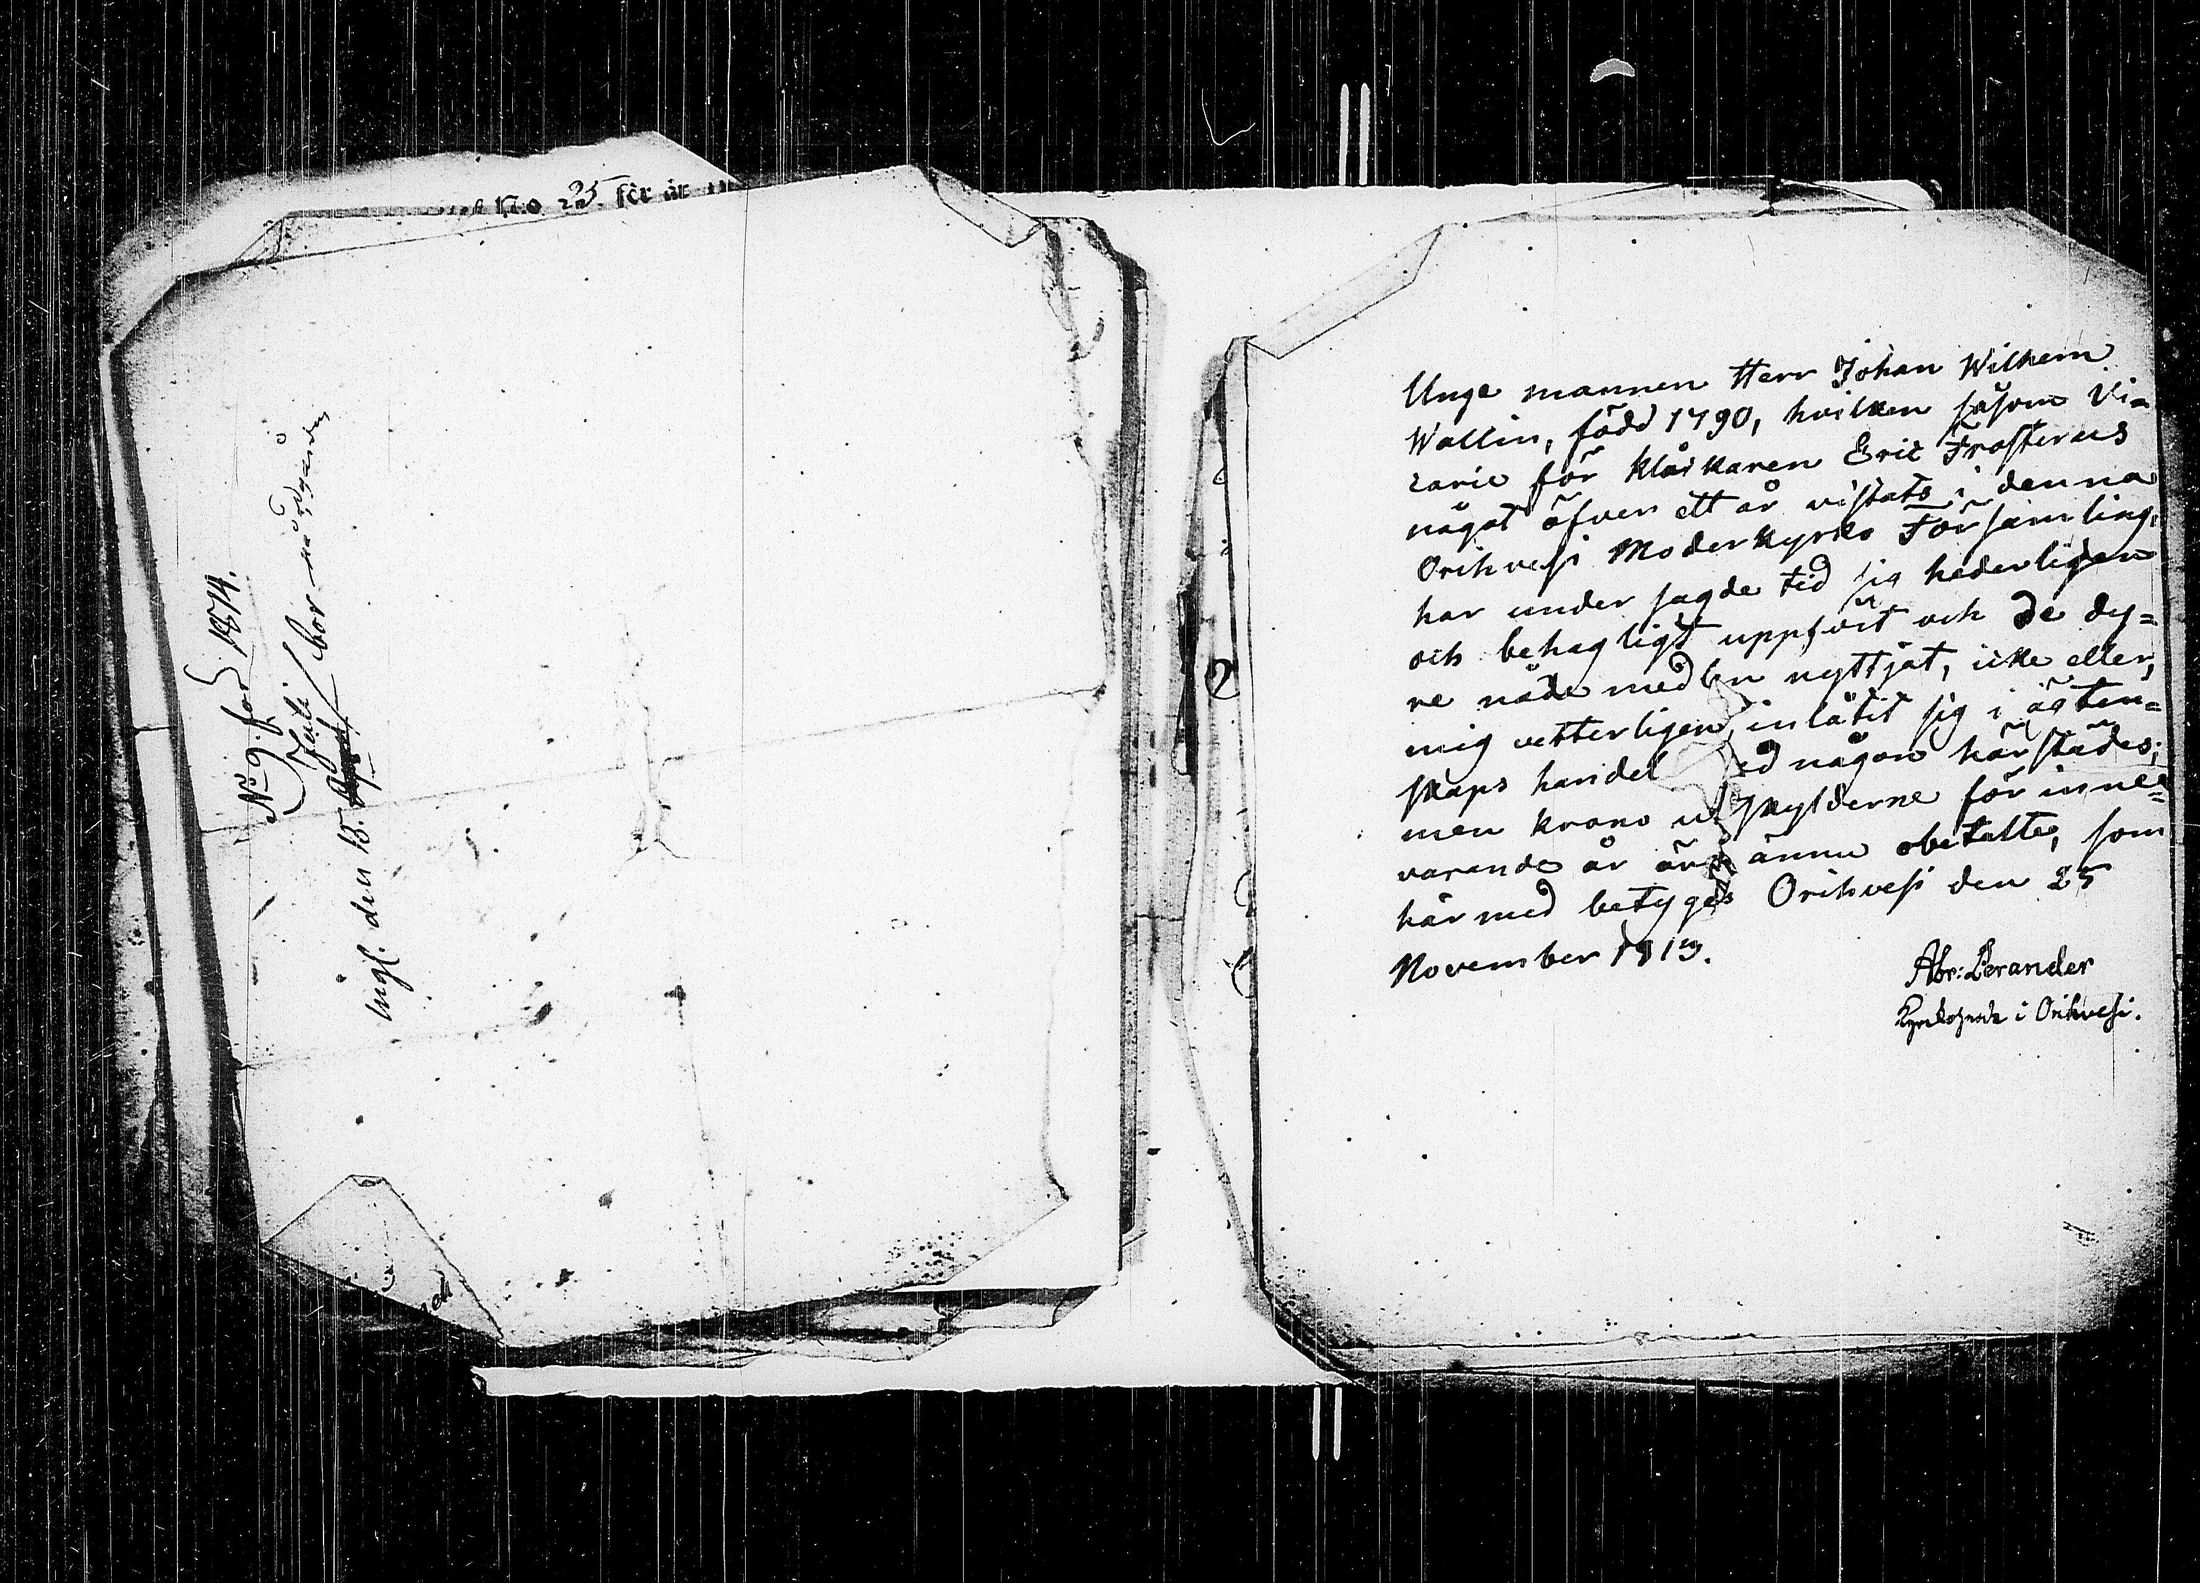 No 25. för år
No 9. för 1814.
Juli
Ingl. den 18. April / bor på
Unge mannen Herr Johan Wilhem
Wallin, född 1790, hvilken såsom Vi=
carie för Klåckaren Eric Frosterus
något öfver ett år vistats i denna
Orihvesi Moderkyrko Församling,
har under sagde tid sig hederligen
och behagligt uppfört och de dy=
re nådemedlen nyttjat, icke eller,
mig vetterligen, inlåtit sig i ägten=
skaps handel med någon härstädes;
men krono utskylderne för inne=
varande år äro ännu obetalte, som
härmed betyges Orihvesi den 25
November 1813.
Abr: Lerander
Kyrkoherde i Orihvesi.